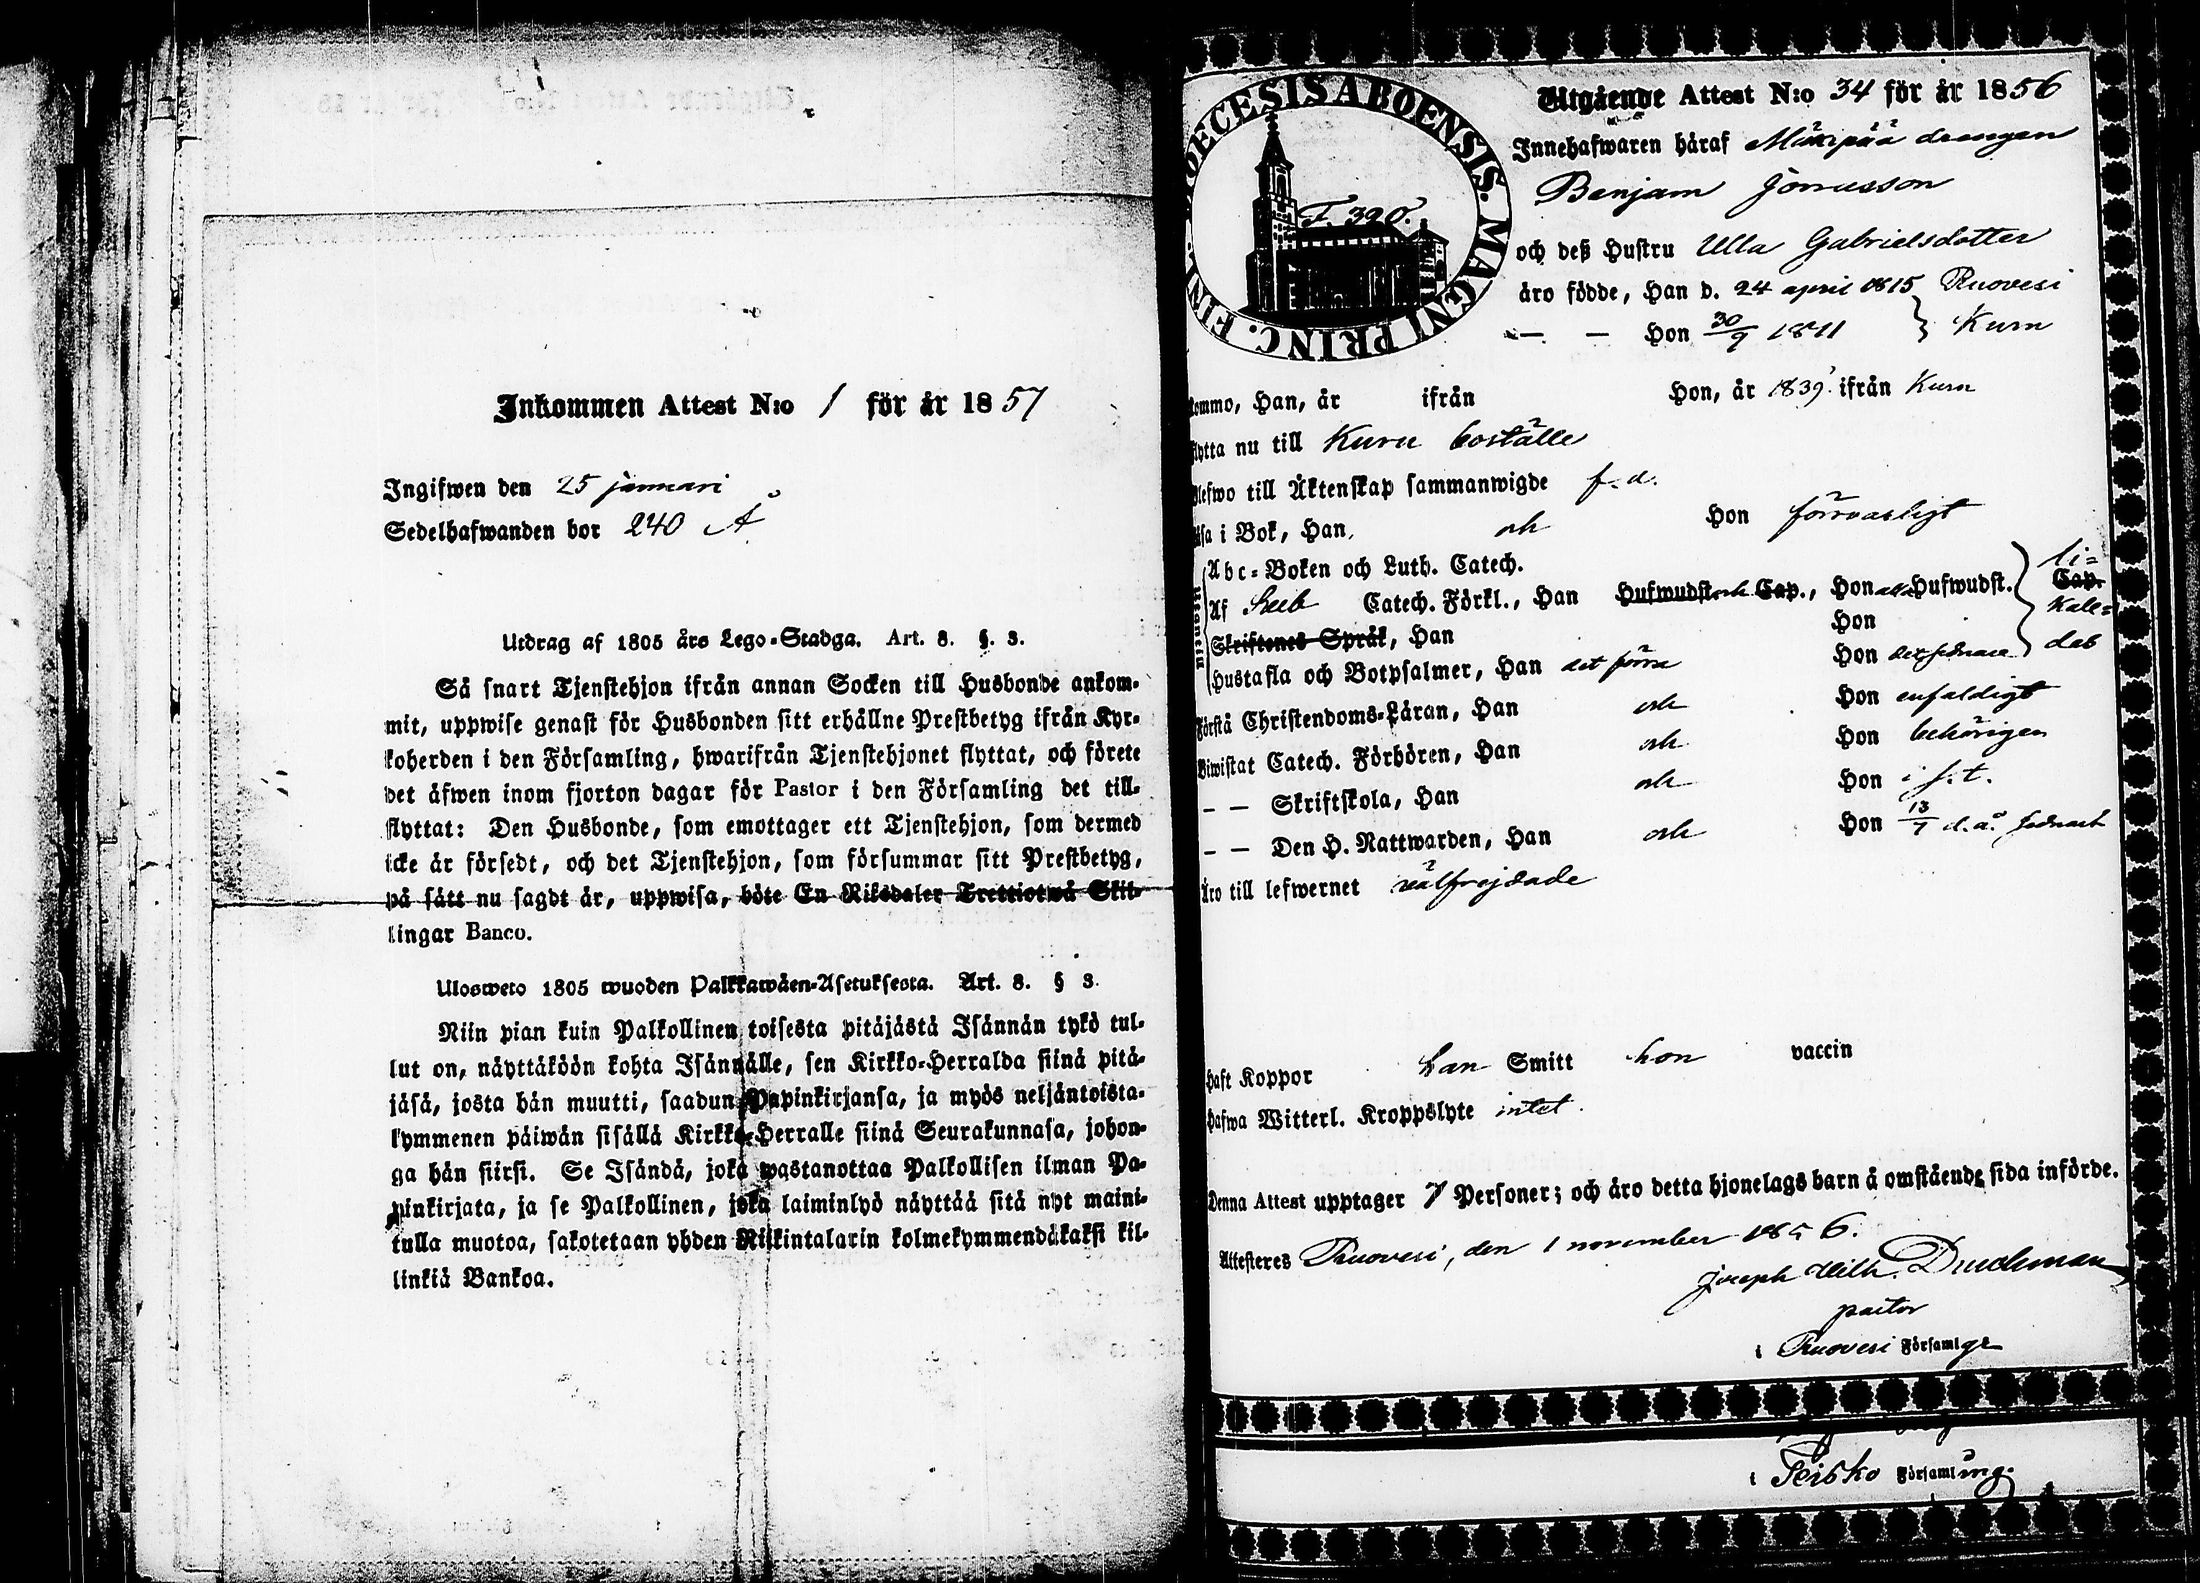 Inkommen Attest N:o 1 för år 1857
Ingifwen den 25 januari
Sedelhafwanden bor 240 Å
Utdrag af 1805 års Lego-Stadga. Art. 8. §. 3.
Så snart Tjenstehjon ifrån annan Socken till Husbonde ankom-
mit, uppwise genast för Husbonden sitt erhållne Prestbetyg ifrån Kyr-
koherden i den Församling, hwarifrån Tjenstehjonet flyttat, och förete
det äfwen inom fjorton dagar för Pastor i den Församling det till-
flyttat: Den Husbonde, som emottager ett Tjenstehjon, som dermed
icke är försedt, och det Tjenstehjon, som försummar sitt Prestbetyg,
på sätt nu sagdt är, uppwisa, böte En Riksdaler Trettiotwå Skil-
lingar Banco.
Ulosweto 1805 wuoden Palkkawäen-Asetuksesta. Art. 8. § 3.
Niin pian kuin Palkollinen toisesta pitäjästä Isännän tykö tul-
lut on, näyttäköön kohta Isännälle, sen Kirkko-Herralda siinä pitä-
jäsä, josta hän muutti, saadun Papinkirjansa, ja myös neljäntoista-
kymmenen päiwän sisällä Kirkko-Herralle siinä Seurakunnasa, johon-
ga hän siirsi. Se Isändä, joka wastanottaa Palkollisen ilman Pa-
pinkirjata, ja se Palkollinen, joka laiminlyö näyttää sitä nyt maini-
tulla muotoa, sakotetaan yhden Riikintalarin kolmekymmendäkaksi kil-
linkiä Bankoa.
DIOECESIS ABOENSIS. MAGNI PRINC. FINL.
F. 320.
Utgående Attest N:o 34 för år 1856
Innehafwaren häraf Mäkipää drengen
Benjam Jonusson
och deß Hustru Ulla Gabrielsdotter
äro födde, Han d. 24 april 1815 Ruovesi
— — Hon 30/9 1811 } Kuru
kommo, Han, år ifrån Hon, år 1839 ifrån Kuru
flytta nu till Kuru boställe
blefwo till Äktenskap sammanwigde f. d.
läsa i Bok, Han, och Hon försvarligt
Abc-Boken och Luth. Catech.
Af Seeb Catech. Förkl., Han Hufwudst. och Cap., Hon Hufwudst. Cap. li-
Skriftenes Språk, Han Hon kale-
Hustafla och Botpsalmer, Han det förra Hon det sednare das
Förstå Christendoms-Läran, Han och Hon enfaldigt
Biwistat Catech. Förhören, Han och Hon behörigen
— — Skriftskola, Han och Hon i s. t.
— — Den H. Nattwarden, Han och Hon 13/7 d. å. sednast
Äro till lefwernet välfrejdade
Haft Koppor han Smitt hon vaccin
Hafwa Witterl. Kroppslyte intet.
Denna Attest upptager 7 Personer; och äro detta hjonelags barn å omstående sida införde.
Attesteres Ruovesi, den 1 november 1856.
Joseph Wilh. Druckman
pastor
i Ruovesi Församlgr
i Teisko Församling.